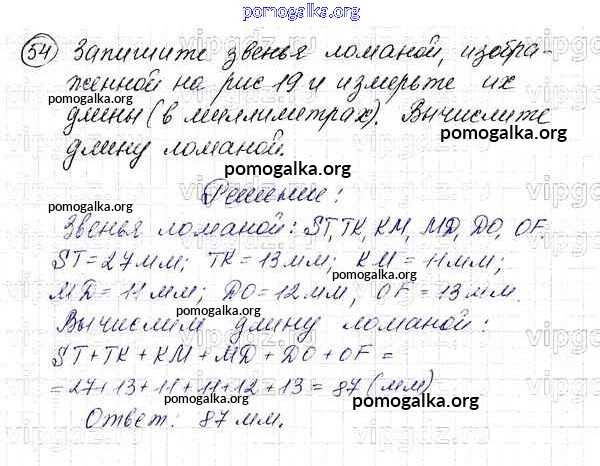 pomogalka.org
54 Запишите звенья ломаной, изобра-
женной на рис 19 и измерьте их
pomogalka.org
длины (в миллиметрах). Вычислите
pomogalka.org
длину ломаной.
pomogalka.org
Решение:
Звенья ломаной: ST, TK, KM, MD, DO, OF.
pomogalka.org
ST = 27 мм; TK = 13 мм; KM = 11 мм;
pomogalka.org
MD = 11 мм; DO = 12 мм; OF = 13 мм.
pomogalka.org
Вычислим длину ломаной:
pomogalka.org
ST + TK + KM + MD + DO + OF =
pomogalka.org
= 27 + 13 + 11 + 11 + 12 + 13 = 87 (мм)
pomogalka.org
Ответ: 87 мм.
pomogalka.org